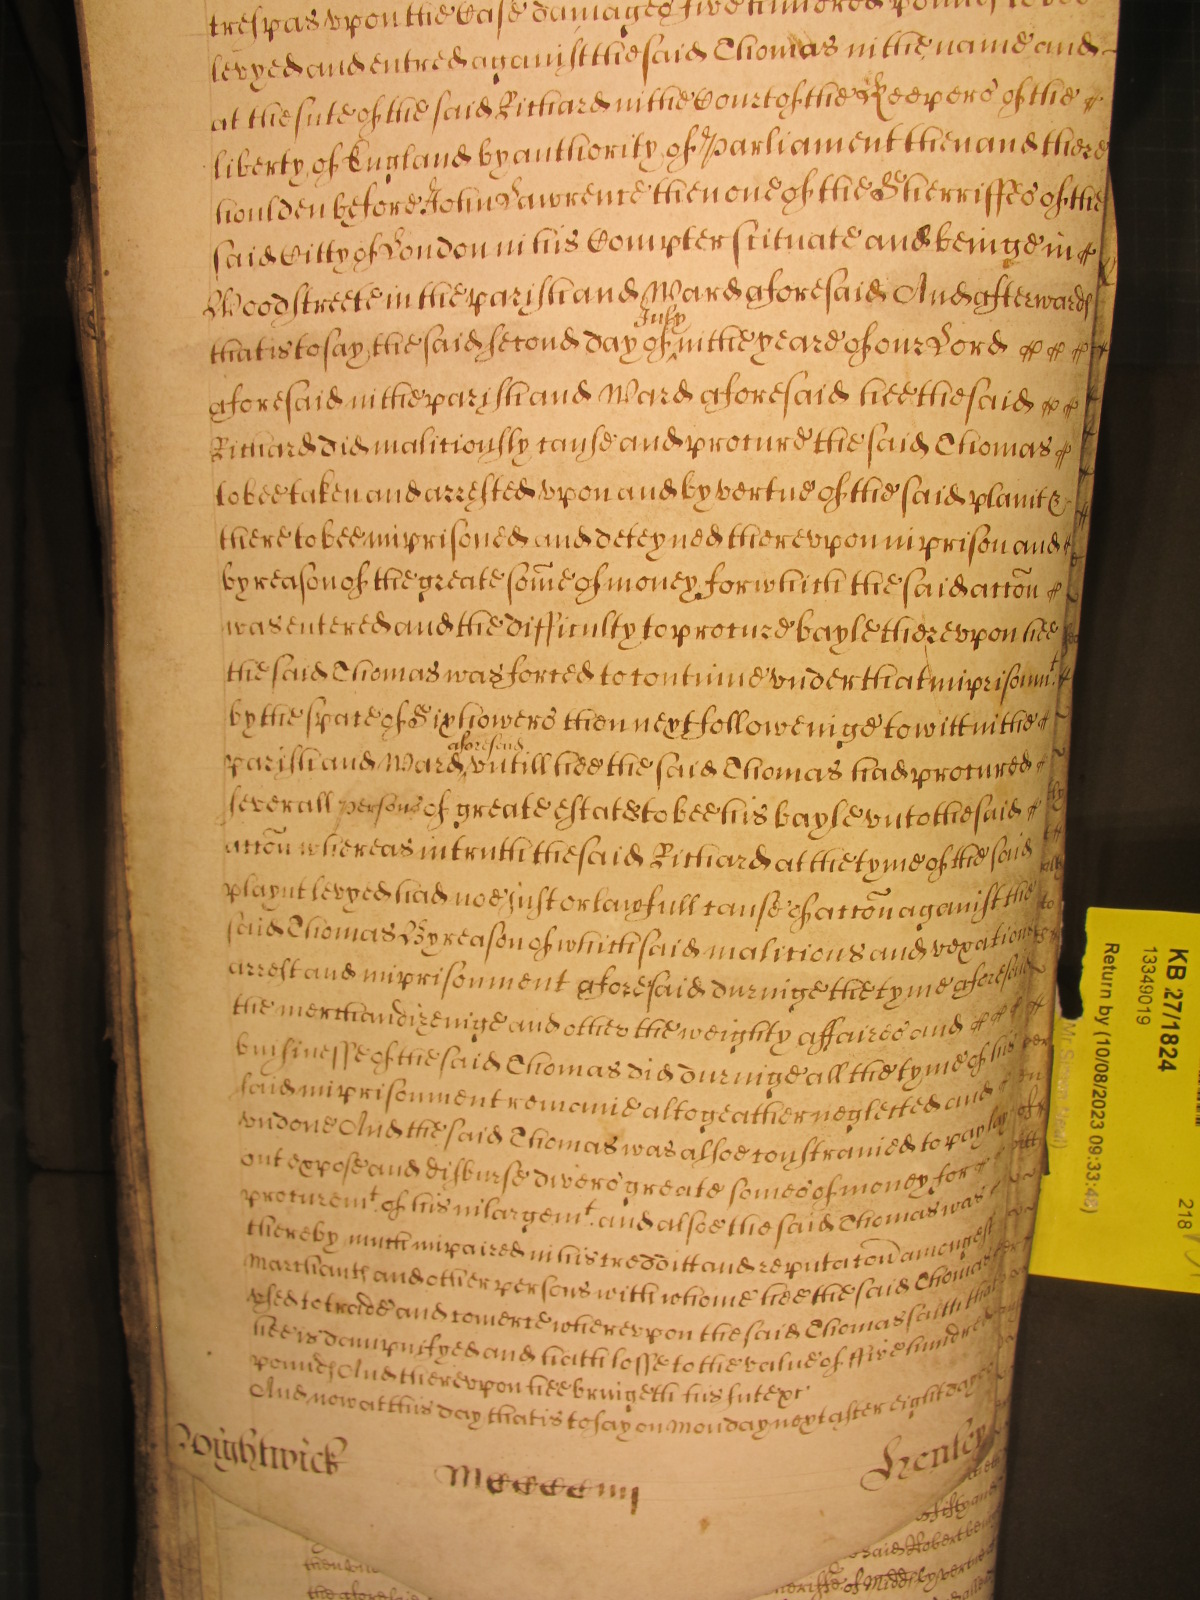 trespas vpon the Case damages five hundred pounds to bee
levyed and entred against the said Thomas in the name and
at the sute of the said Richard in the Court of the Keepers of the
liberty of England by authority of Parliament then and there
houlden before John Lawrence then one of the Sherriffes of the
said Citty of London in his Compter scituate and beinge in
Woodstreete in the parish and Ward aforesaid And afterwards
July
that is to say the said second day of in the yeare of our Lord
aforesaid in the parish and Ward aforesaid hee the said
Richard did malitiously cause and procure the said Thomas
to bee taken and arrested vpon and by vertue of the said plaint &
there to bee imprisoned and deteyned therevpon in prison and
by reason of the greate som̄e of money for which the said accōn
was entered and the difficulty to procure bayle therevpon hee
the said Thomas was forced to continue vnder that imprisonmt
by the space of Six howers then next followeinge to witt in the
aforesaid
parish and Ward vntill hee the said Thomas had procured
severall persons of greate estate to bee his bayle vnto the said
accōn whereas in truth the said Richard at the tyme of the said
playnt levyed had noe just or lawfull cause of accōn against the
said Thomas By reason of which said malitious and vexatious
arrest and imprisonment aforesaid duringe the tyme aforesaid
the merchandizeinge and other the weighty affaires and
businesse of the said Thomas did duringe all the tyme of his
said imprisonment remaine altogeather neglected and
vndone And the said Thomas was alsoe constrained to pay lay
out expose and disburse divers greate somes of money for
procuremt. of his inlargemt. and alsoe the said Thomas was
thereby much impaired in his credditt and reputacōn amongest
Marchants and other persons with whome hee the said Thomas
vsed to trade and comerce wherevpon the said Thomas saith that
hee is dampnifyed and hath losse to the value of ffive hundred
pounds And therevpon hee bringeth his sute &c
And now at this day that is to say on Monday next after eight dayes
Wightwick Mccccciiij Henley
KB 27/1824
13349019
Return by (10/08/2023 09:33:48)
218